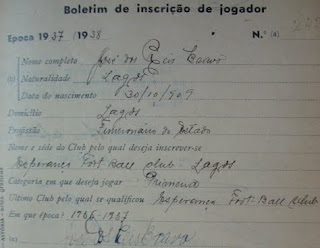 Boletim de inscrição de jogador
Epoca 1937 / 1938 N.º (a)
Nome completo José dos Reis
(b) Naturalidade Lagos
Data do nascimento 30/10/909
Domicílio Lagos
Profissão Funcionário do Estado
Nome e séde do Club pelo qual deseja inscrever-se
Esperança Foot Ball Club - Lagos
Categoria em que deseja jogar Primeira
Ultimo Club pelo qual se qualificou Esperança Foot-Ball Club
Em que época? 1936-1937